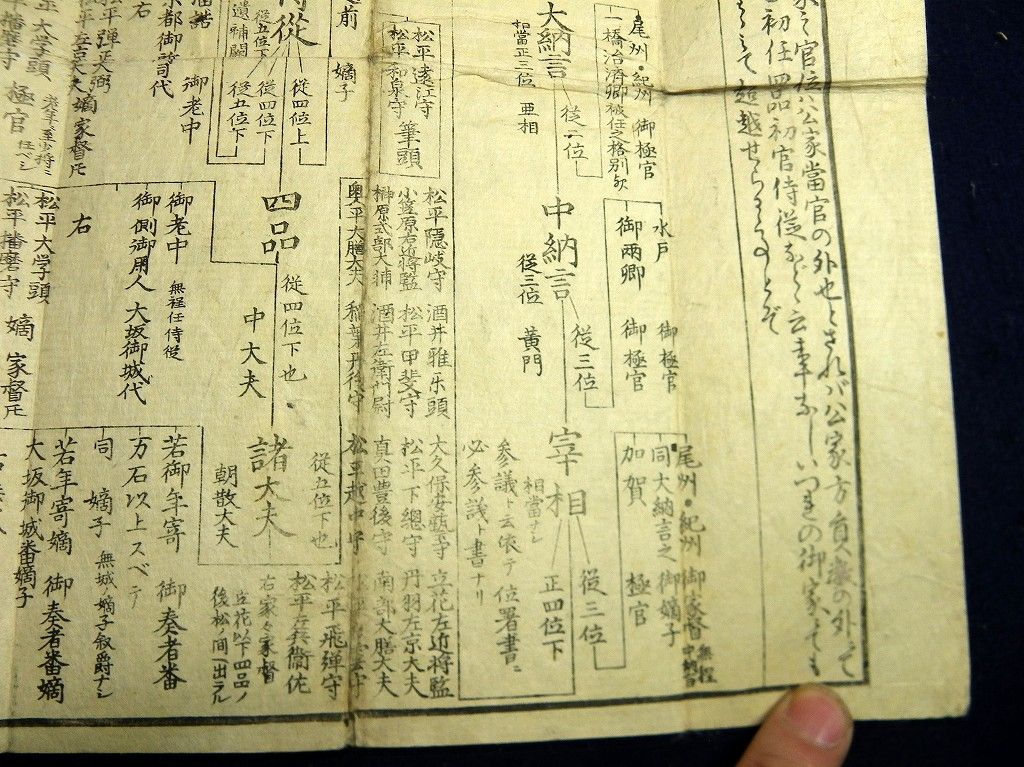 家之官位ハ公家當官の外也とされバ公家方員数の外にて
初任四品初官侍従など云事なしいづれの御家にても
越せらるゝとぞ
大納言
相當正三位 亜相
従二位
尾州・紀州 御極官
一橋治済卿被任之格別ナリ
中納言
従三位 黄門
従三位
水戸 御極官
御両卿 御極官
宰相
相當ナシ
参議ト云依テ位署書ニ
必参議ト書ナリ
正四位下
従三位
尾州・紀州 御家督 無程中納言
同大納言之御嫡子
加賀 極官
松平遠江守
松平和泉守
筆頭
松平隠岐守 酒井雅乐頭 大久保安藝守 立花左近将監
小笠原右近将監 松平甲斐守 松平下總守 丹羽左京大夫
榊原式部大輔 酒井左衛門尉 真田豊後守 南部大膳大夫
奥平大膳大夫 稲葉丹後守 松平越中守
松平飛弾守
松平左兵衛佐
右家々家督
立花以下四品ノ
後松ノ間ニ出ラル
嫡子
侍従
従五位下
遺補闕
従四位上
従四位下
従五位下
四品
従四位下也
中大夫
諸大夫
従五位下也
朝散大夫
御老中
京都御所司代
右
松平弾正大弼
松平左京大夫嫡家督モ
松平大学頭 老年至少将ニ任ベシ
松平播磨守 極官
御老中 無程任侍従
御側御用人 大坂御城代
右
松平大学頭
松平播磨守 嫡家督モ
若御年寄 御奏者番
万石以上スベテ
同 嫡子 無城嫡子叙爵ナシ
若年寄嫡 御奏者番嫡
大坂御城番嫡子